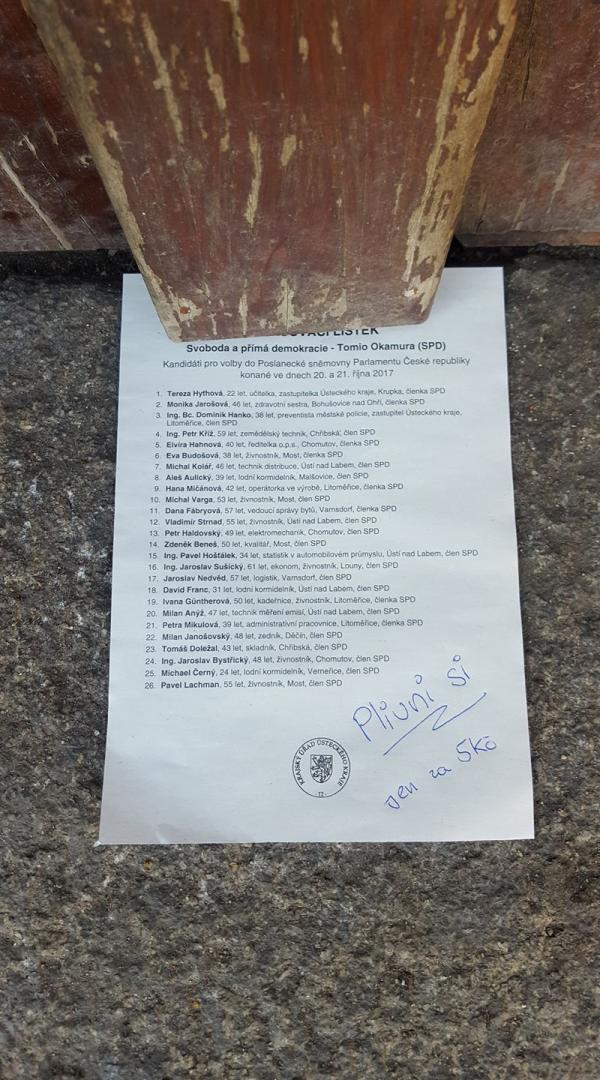 Svoboda a přímá demokracie - Tomio Okamura (SPD)
Kandidáti pro volby do Poslanecké sněmovny Parlamentu České republiky
konané ve dnech 20. a 21. října 2017
1. Tereza Hyťhová, 22 let, učitelka, zastupitelka Ústeckého kraje, Krupka, členka SPD
2. Monika Jarošová, 46 let, zdravotní sestra, Bohušovice nad Ohří, členka SPD
3. Ing. Bc. Dominik Hanko, 38 let, preventista městské policie, zastupitel Ústeckého kraje,
Litoměřice, člen SPD
4. Ing. Petr Kříž, 59 let, zemědělský technik, Chřibská, člen SPD
5. Elvíra Hahnová, 40 let, ředitelka o.p.s., Chomutov, členka SPD
6. Eva Budošová, 38 let, živnostník, Most, členka SPD
7. Michal Kolář, 46 let, technik distribuce, Ústí nad Labem, člen SPD
8. Aleš Aulický, 39 let, lodní kormidelník, Malšovice, člen SPD
9. Hana Mičánová, 42 let, operátorka ve výrobě, Litoměřice, členka SPD
10. Michal Varga, 53 let, živnostník, Most, člen SPD
11. Dana Fábryová, 57 let, vedoucí správy bytů, Varnsdorf, členka SPD
12. Vladimír Strnad, 55 let, živnostník, Ústí nad Labem, člen SPD
13. Petr Haldovský, 49 let, elektromechanik, Chomutov, člen SPD
14. Zdeněk Beneš, 50 let, kvalitář, Most, člen SPD
15. Ing. Pavel Hošťálek, 34 let, statistik v automobilovém průmyslu, Ústí nad Labem, člen SPD
16. Ing. Jaroslav Sušický, 61 let, ekonom, živnostník, Louny, člen SPD
17. Jaroslav Nedvěd, 57 let, logistik, Varnsdorf, člen SPD
18. David Franc, 31 let, lodní kormidelník, Ústí nad Labem, člen SPD
19. Ivana Güntherová, 50 let, kadeřnice, živnostník, Litoměřice, členka SPD
20. Milan Anýž, 47 let, technik měření emisí, Ústí nad Labem, člen SPD
21. Petra Mikulová, 39 let, administrativní pracovnice, Litoměřice, členka SPD
22. Milan Janošovský, 48 let, zedník, Děčín, člen SPD
23. Tomáš Doležal, 43 let, skladník, Chřibská, člen SPD
24. Ing. Jaroslav Bystřický, 48 let, živnostník, Chomutov, člen SPD
25. Michael Černý, 24 let, lodní kormidelník, Verneřice, člen SPD
26. Pavel Lachman, 55 let, živnostník, Most, člen SPD
Plivni si
jen za 5Kč
KRAJSKÝ ÚŘAD ÚSTECKÉHO KRAJE
- 12 -